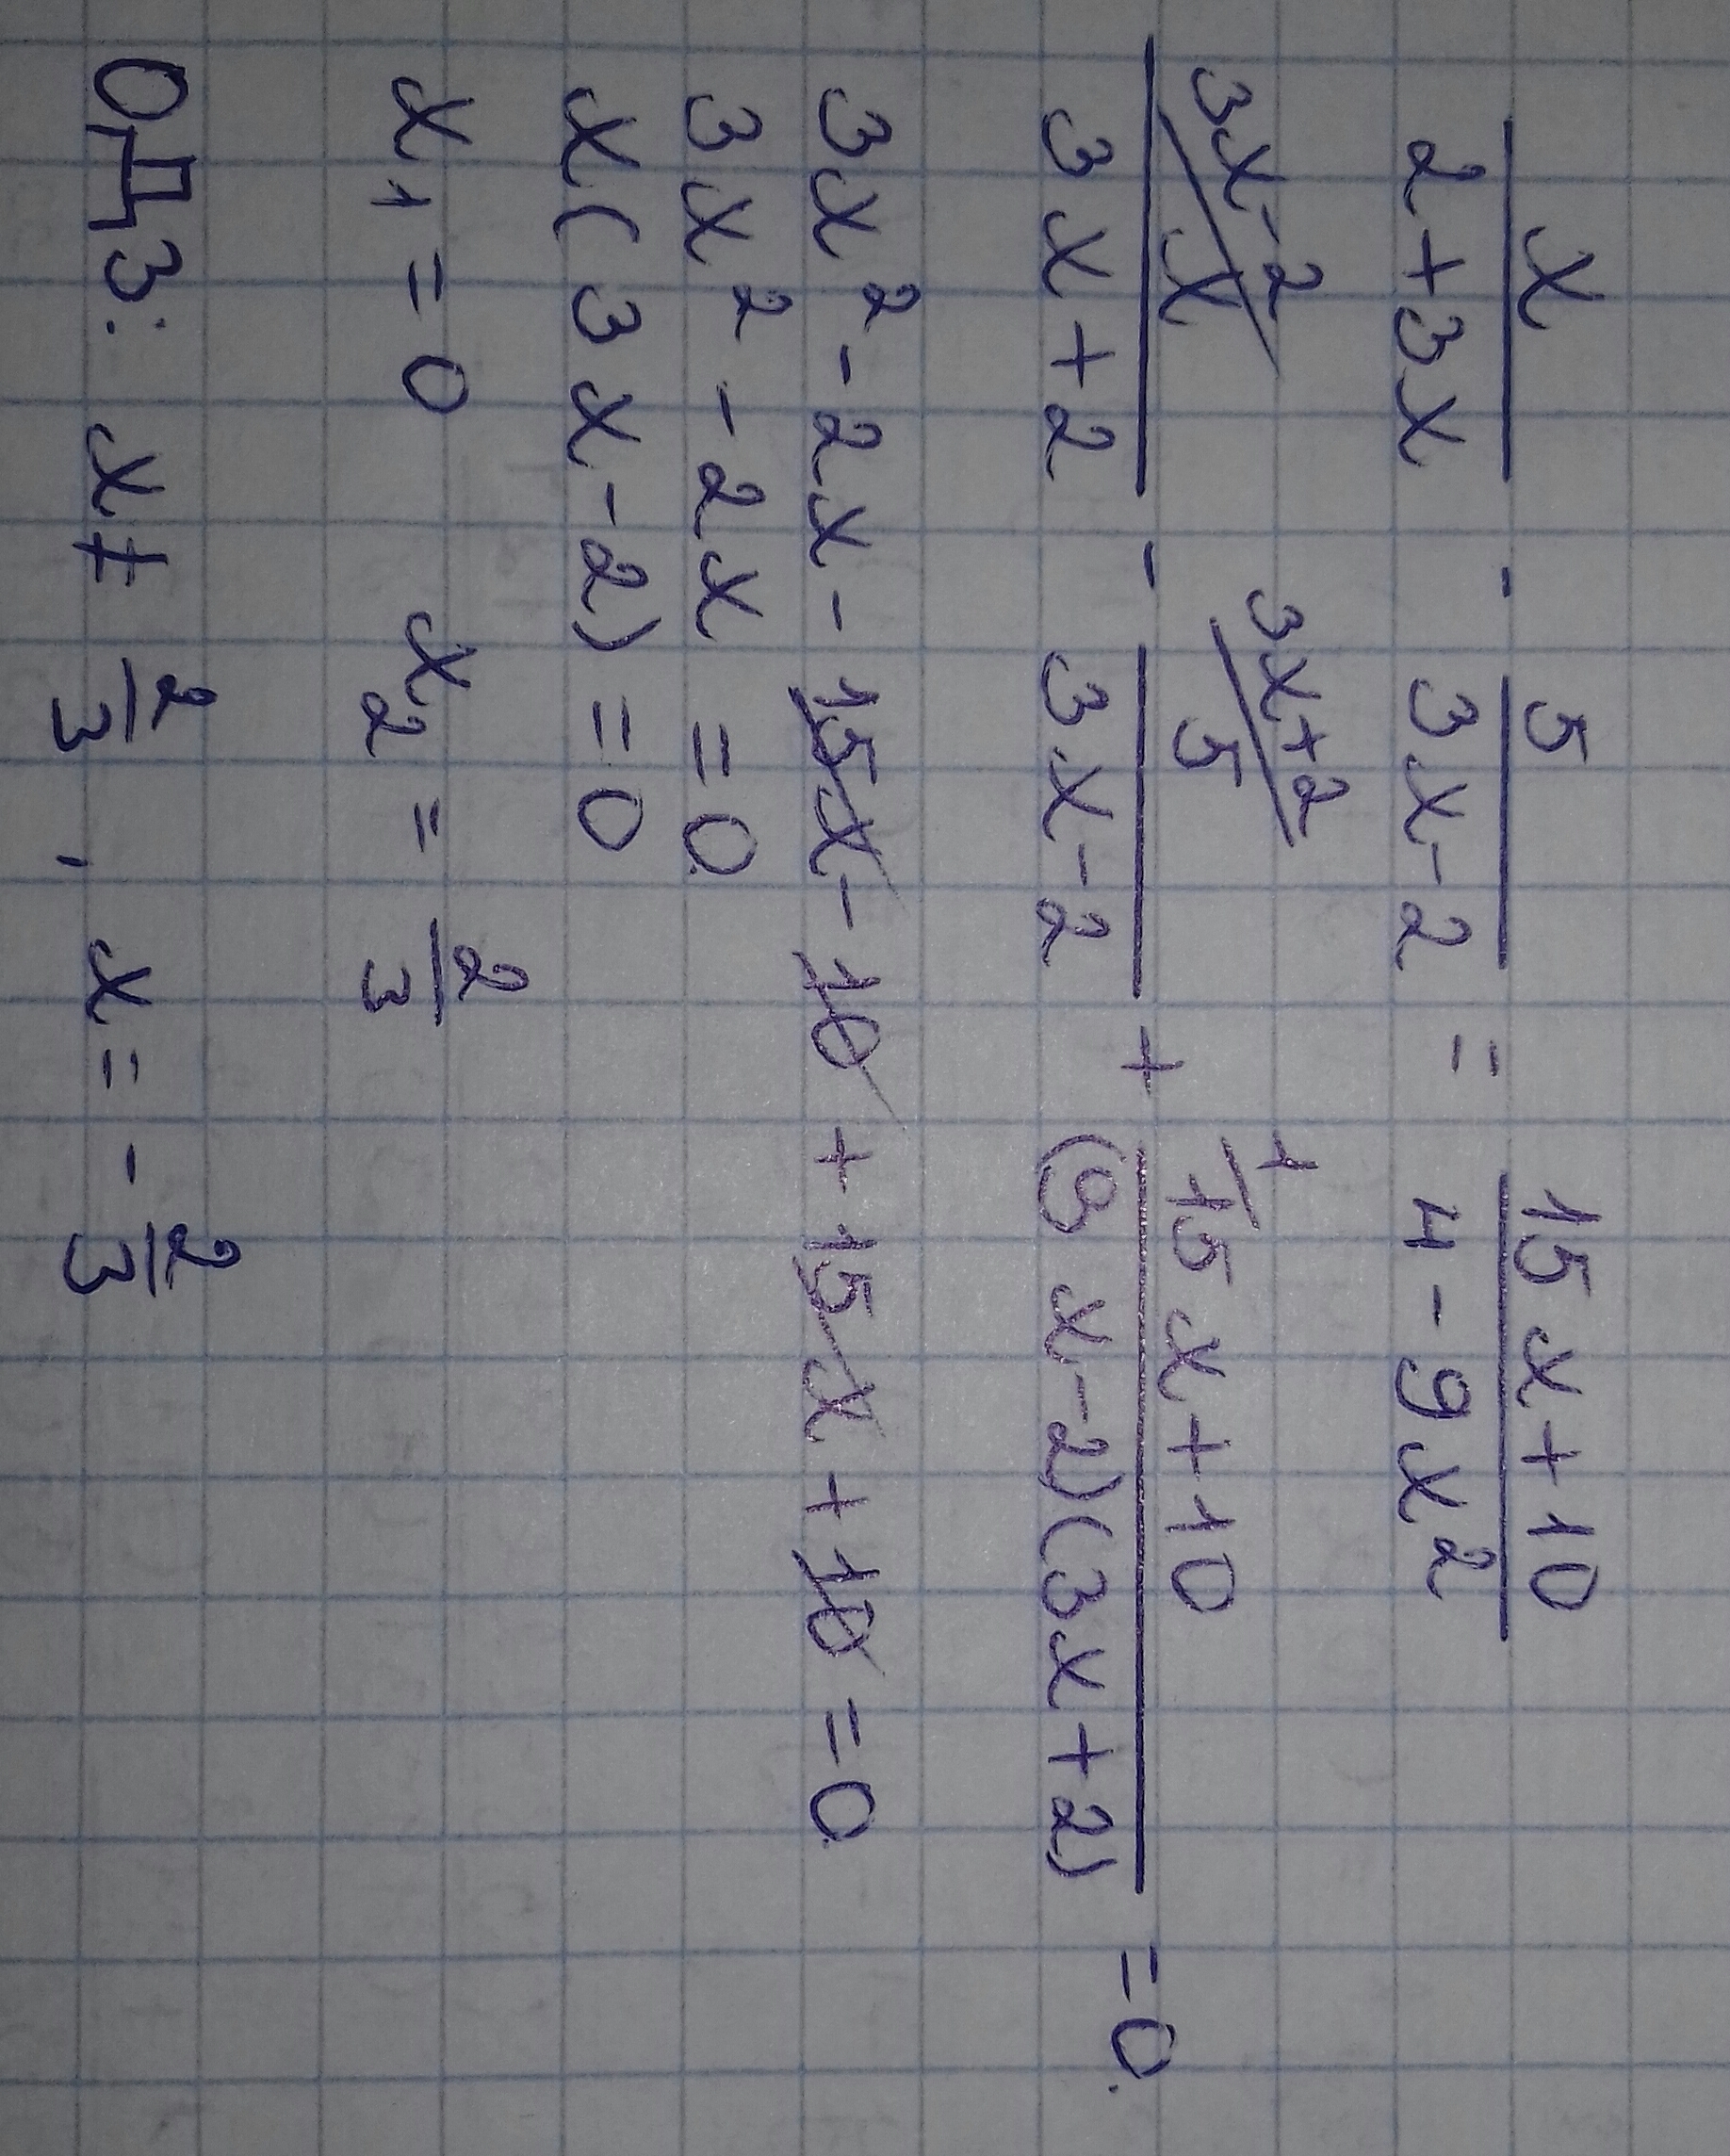 x/(2+3x) - 5/(3x-2) = (15x+10)/(4-9x²)
3x-2/ x/(3x+2) - 3x+2/ 5/(3x-2) + 1/ (15x+10)/((3x-2)(3x+2)) = 0.
3x² - 2x - 15x - 10 + 15x + 10 = 0
3x² - 2x = 0
x(3x-2) = 0
x₁ = 0 x₂ = 2/3
ОДЗ: x ≠ 2/3, x = - 2/3